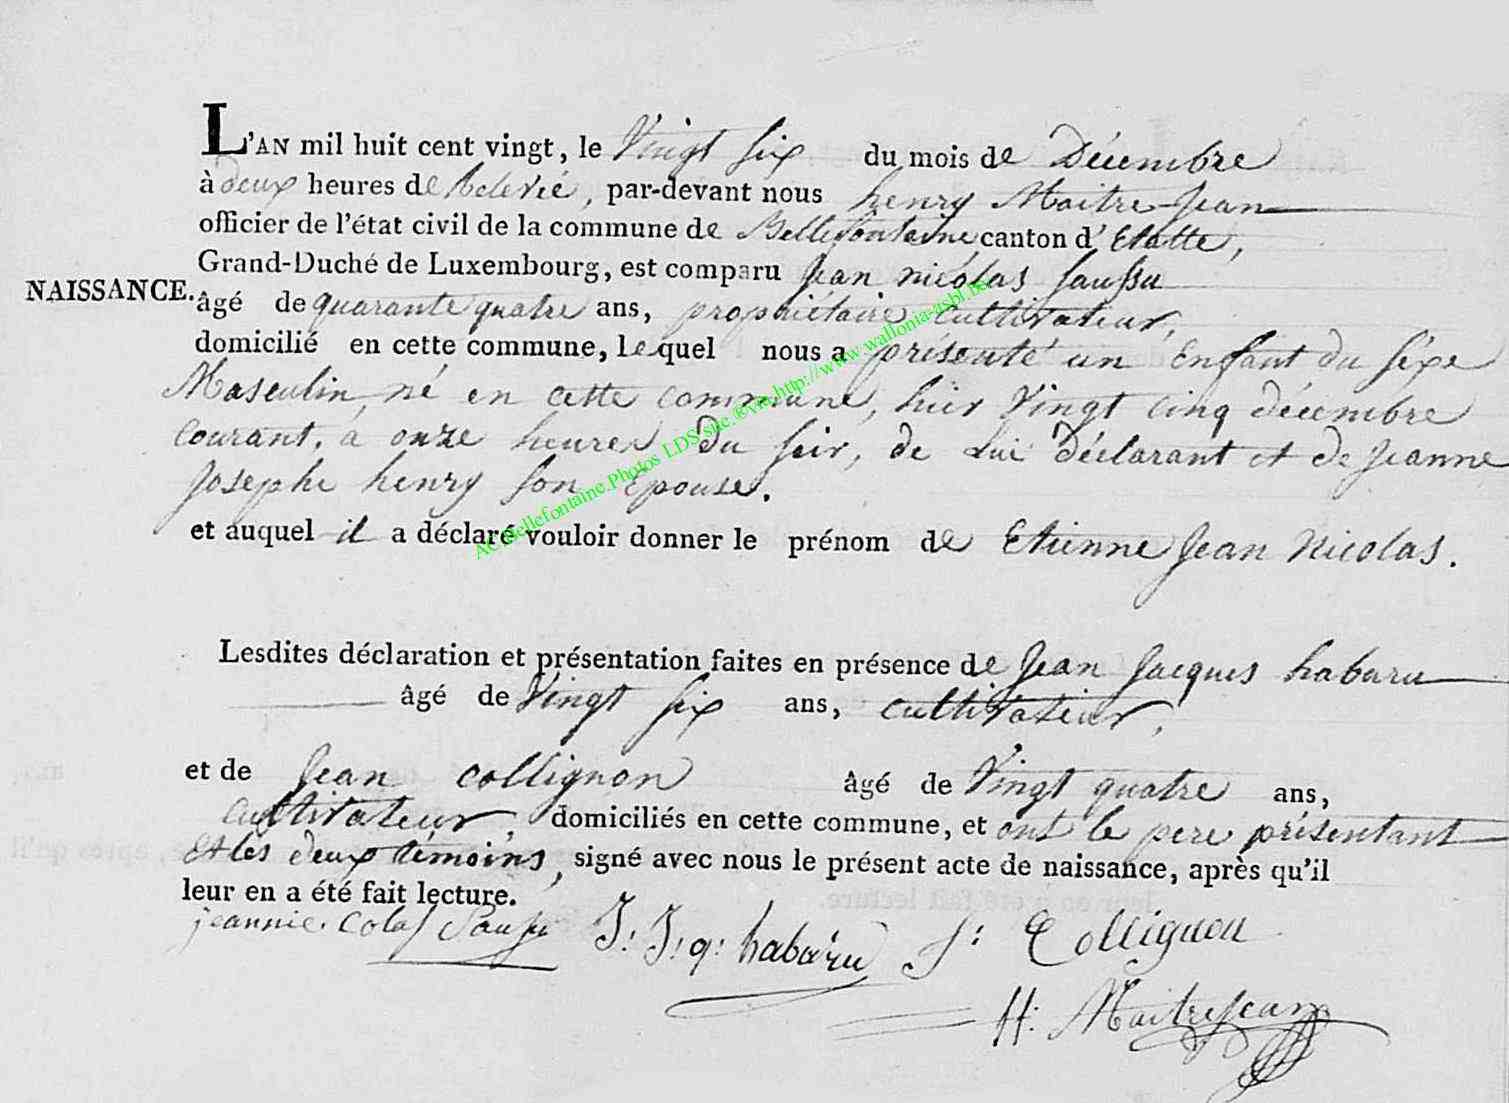 L'AN mil huit cent vingt, le Vingt six du mois de Décembre
à deux heures de Relevée, par-devant nous henry Maitre Jean
officier de l'état civil de la commune de Bellefontaine canton d' Etalle,
Grand-Duché de Luxembourg, est comparu Jean nicolas Saussu
NAISSANCE. âgé de quarante quatre ans, propriétaire cultivateur,
domicilié en cette commune, lequel nous a présenté un Enfant du sexe
Masculin, né en cette commune, hier Vingt cinq décembre
courant, à onze heures du soir, de Lui déclarant et de Jeanne
Josephe henry son Epouse.
et auquel il a déclaré vouloir donner le prénom de Etienne Jean Nicolas.
AC Bellefontaine.Photos LDS
http://www.wallonia-asbl.be
Lesdites déclaration et présentation faites en présence de Jean Jacques habaru
âgé de Vingt six ans, cultivateur,
et de Jean Collignon âgé de Vingt quatre ans,
cultivateur, domiciliés en cette commune, et ont le pere présentant
et les deux témoins, signé avec nous le présent acte de naissance, après qu'il
leur en a été fait lecture.
jeannie. Colas J: J: q: habaru J: Collignon
H: MaitreJean